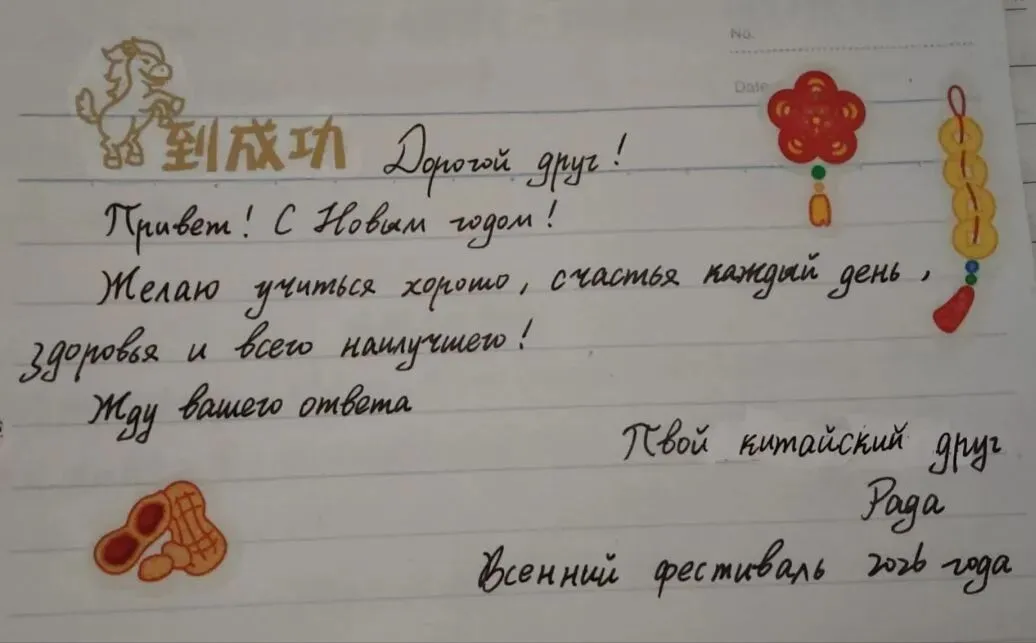 No.
Date
到成功
Дорогой друг!
Привет! С Новым годом!
Желаю учиться хорошо, счастья каждый день,
здоровья и всего наилучшего!
Жду вашего ответа
Твой китайский друг
Рада
Всенний фестиваль 2026 года